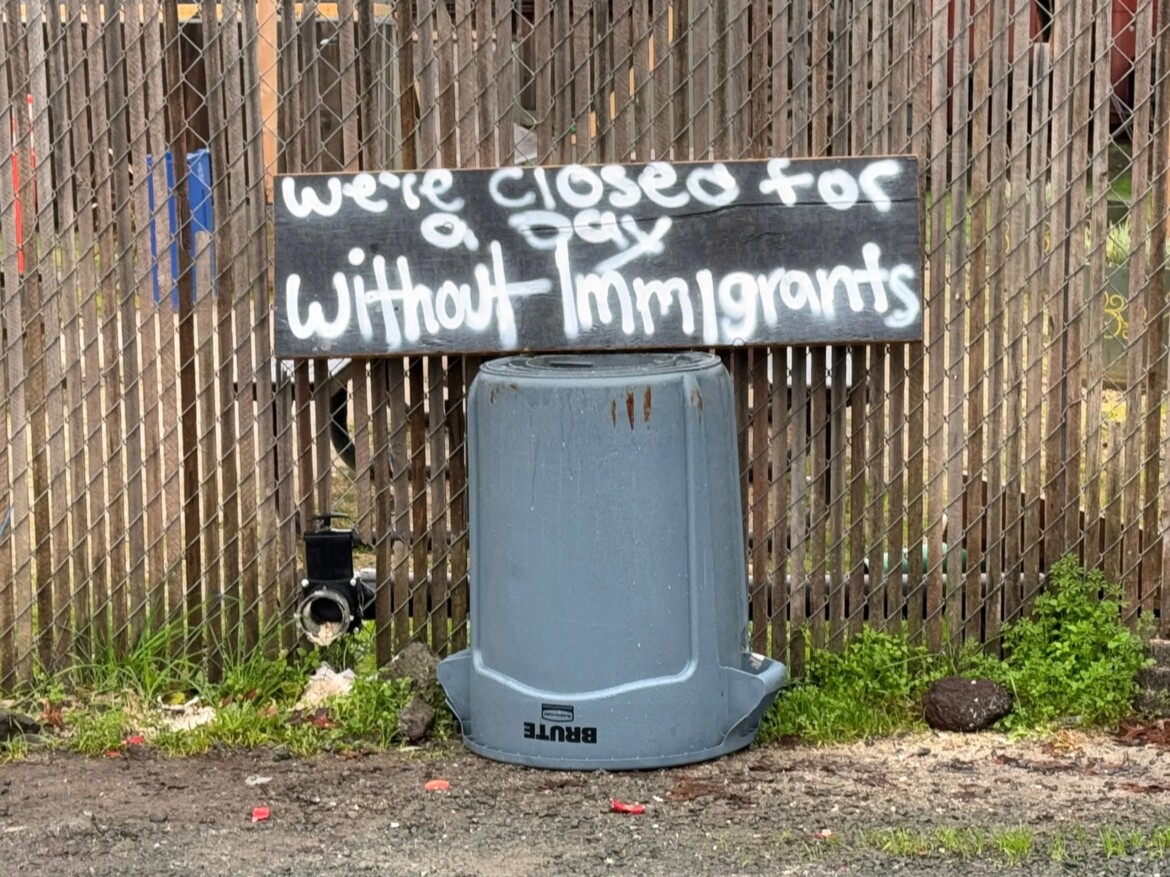 we're closed for
a Day
without Immigrants
BRUTE